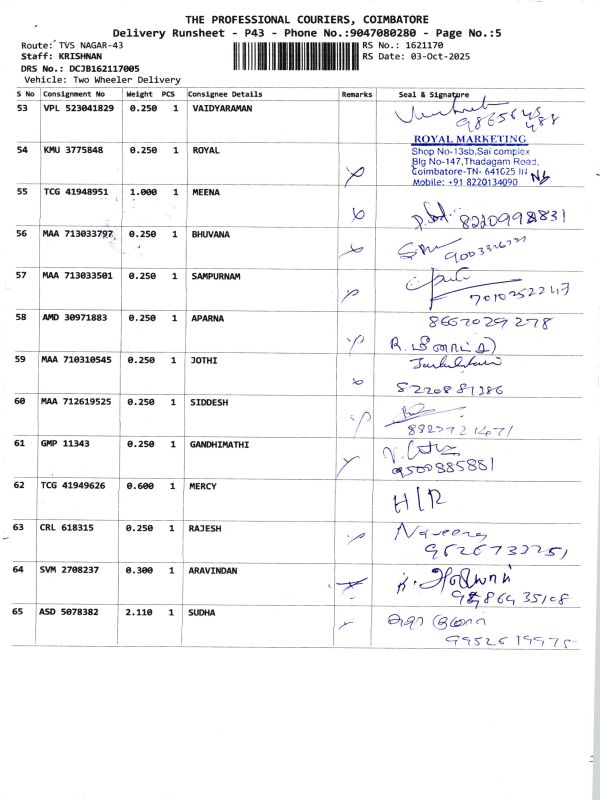 THE PROFESSIONAL COURIERS, COIMBATORE
Delivery Runsheet - P43 - Phone No.:9047080280 - Page No.:5
Route: TVS NAGAR-43 RS No.: 1621170
Staff: KRISHNAN RS Date: 03-Oct-2025
DRS No.: DCJB162117005
Vehicle: Two Wheeler Delivery
S No Consignment No Weight PCS Consignee Details Remarks Seal & Signature
53 VPL 523041829 0.250 1 VAIDYARAMAN
ROYAL MARKETING
54 KMU 3775848 0.250 1 ROYAL Shop No-13sb,Sai complex
Blg No-147,Thadagam Road,
Coimbatore-TN- 641025 IN
Mobile: +91 8220134090
55 TCG 41948951 1.000 1 MEENA
8220998831
56 MAA 713033797 0.250 1 BHUVANA
57 MAA 713033501 0.250 1 SAMPURNAM
58 AMD 30971883 0.250 1 APARNA 8667029278
59 MAA 710310545 0.250 1 JOTHI
8220881386
60 MAA 712619525 0.250 1 SIDDESH
61 GMP 11343 0.250 1 GANDHIMATHI
9500885881
62 TCG 41949626 0.600 1 MERCY H/R
63 CRL 618315 0.250 1 RAJESH
64 SVM 2708237 0.300 1 ARAVINDAN
65 ASD 5078382 2.110 1 SUDHA
9952619975